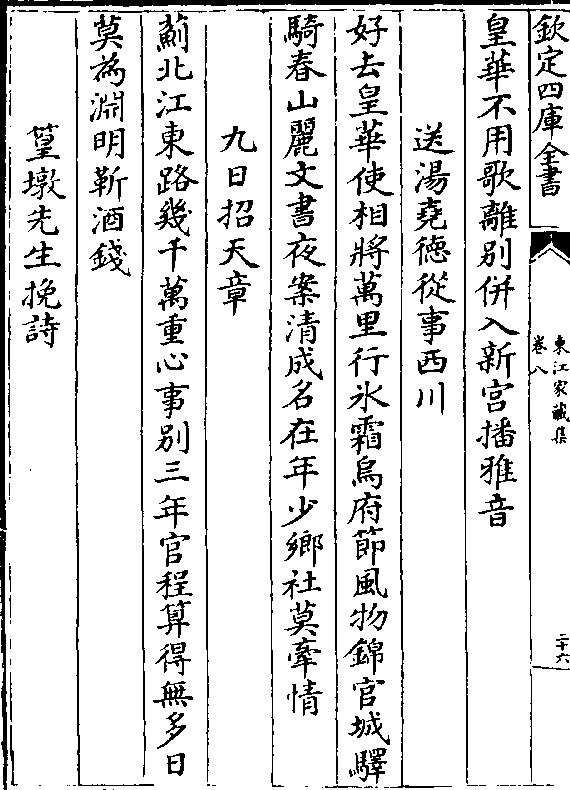 欽定四庫全書
東江家藏集
卷八
二十六
皇華不用歌離别併入新宫播雅音
送湯堯德從事西川
好去皇華使相將萬里行氷霜烏府節風物錦官城驛
騎春山麗文書夜案清成名在年少鄉社莫牽情
九日招天章
薊北江東路幾千萬重心事别三年官程算得無多日
莫為淵明靳酒錢
篁墩先生挽詩